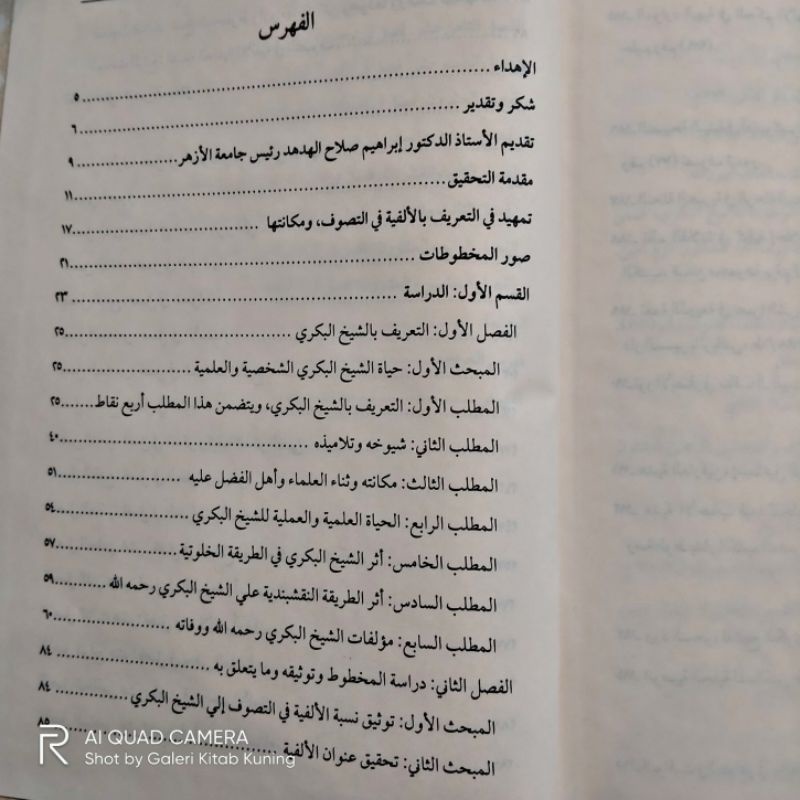 الفهرس
الإهداء ........ ٥
شكر وتقدير ........ ٦
تقديم الأستاذ الدكتور إبراهيم صلاح الهدهد رئيس جامعة الأزهر ........ ٩
مقدمة التحقيق ........ ١١
تمهيد في التعريف بالألفية في التصوف، ومكانتها ........ ١٧
صور المخطوطات ........ ٢١
القسم الأول: الدراسة ........ ٢٣
الفصل الأول: التعريف بالشيخ البكري ........ ٢٥
المبحث الأول: حياة الشيخ البكري الشخصية والعلمية ........ ٢٥
المطلب الأول: التعريف بالشيخ البكري، ويتضمن هذا المطلب أربع نقاط ........ ٢٥
المطلب الثاني: شيوخه وتلاميذه ........ ٤٠
المطلب الثالث: مكانته وثناء العلماء وأهل الفضل عليه ........ ٥١
المطلب الرابع: الحياة العلمية والعملية للشيخ البكري ........ ٥٤
المطلب الخامس: أثر الشيخ البكري في الطريقة الخلوتية ........ ٥٧
المطلب السادس: أثر الطريقة النقشبندية علي الشيخ البكري رحمه الله ........ ٥٩
المطلب السابع: مؤلفات الشيخ البكري رحمه الله ووفاته ........ ٦٠
الفصل الثاني: دراسة المخطوط وتوثيقه وما يتعلق به ........ ٨٤
المبحث الأول: توثيق نسبة الألفية في التصوف إلي الشيخ البكري ........ ٨٤
المبحث الثاني: تحقيق عنوان الألفية ........ ٨٥
AI QUAD CAMERA
Shot by Galeri Kitab Kuning